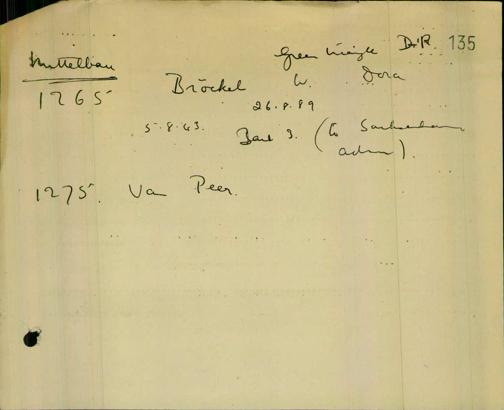 Mittelbau
Green triangle D.R. 135
1265 Bröckel W. Dora
26.8.89
5.8.43. (to Sachsenhausen
admin).
1275. Van Peer.